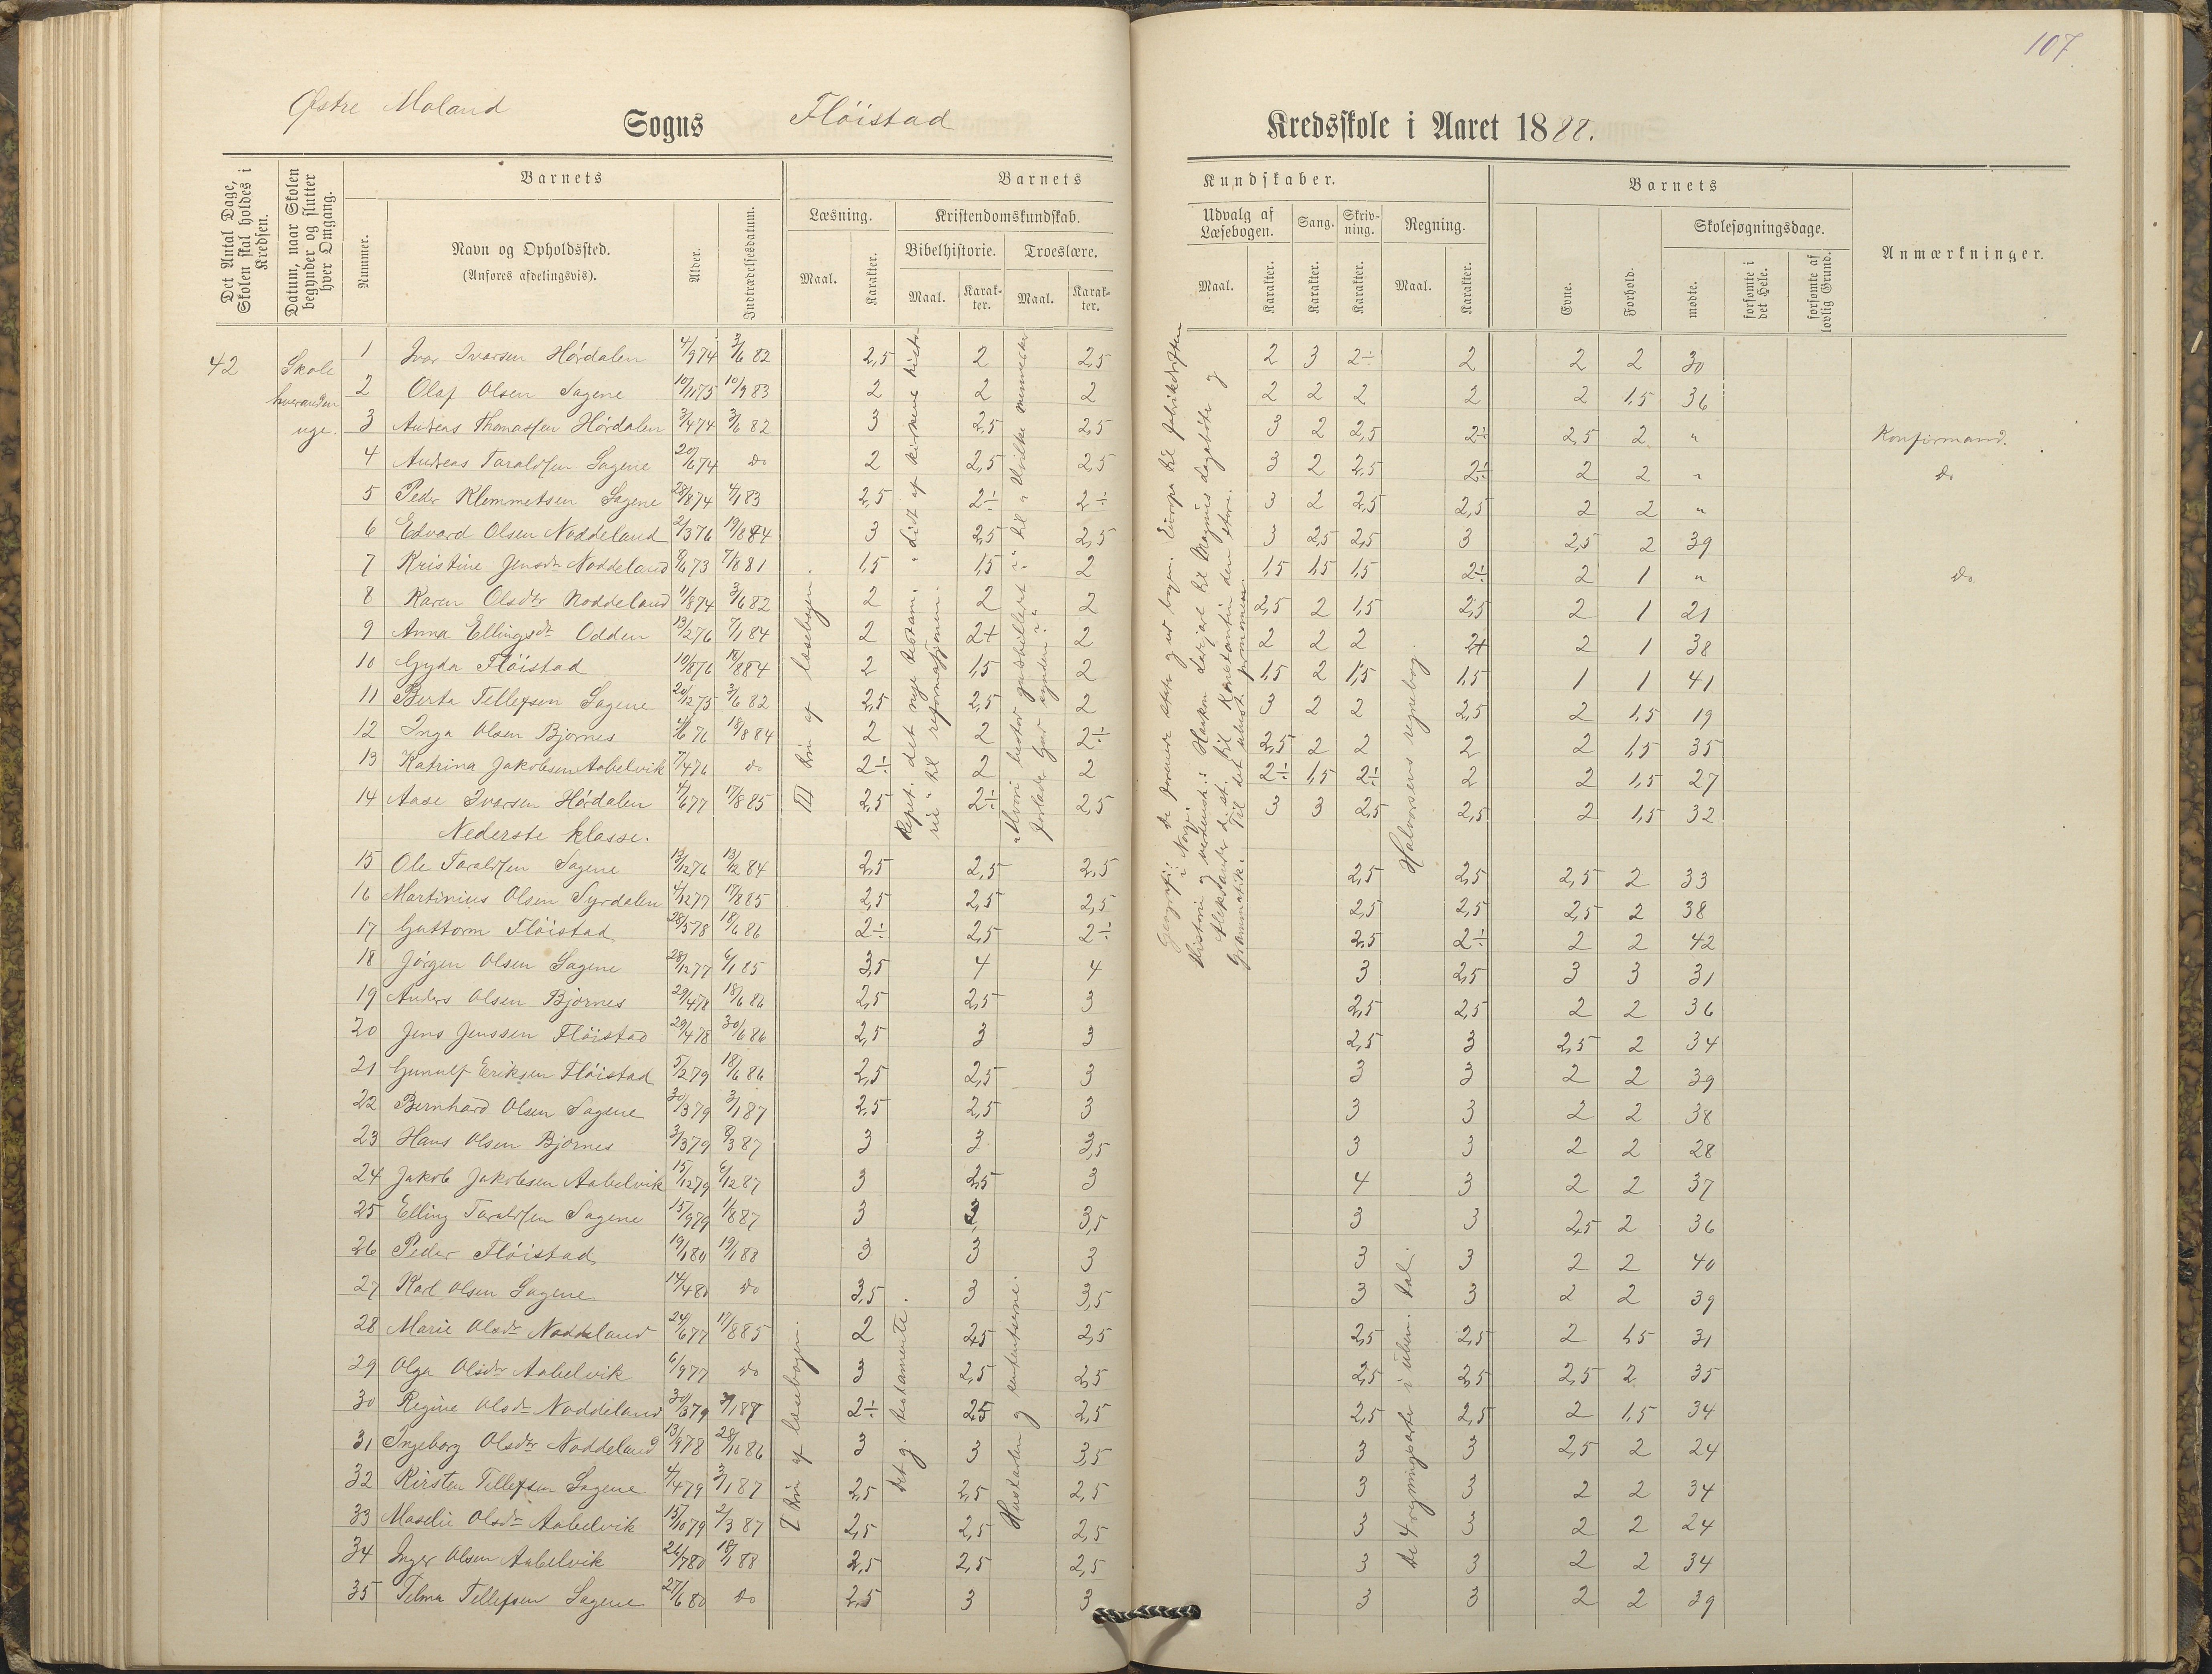 107
Østre Moland Sogns Flöistad Kredsskole i Aaret 1888.
Det Antal Dage, Skolen skal holdes i Kredsen.
Datum, naar Skolen begynder og slutter hver Omgang.
Barnets
Nummer.
Navn og Opholdssted.
(Anføres afdelingsvis).
Alder.
Indtrædelsesdatum.
Barnets Kundskaber.
Læsning.
Maal.
Karakter.
Kristendomskundskab.
Bibelhistorie.
Maal.
Karakter.
Troeslære.
Maal.
Karakter.
Udvalg af Læsebogen.
Maal.
Karakter.
Sang.
Karakter.
Skrivning.
Karakter.
Regning.
Maal.
Karakter.
Barnets
Evne.
Forhold.
Skolesøgningsdage.
mødte.
forsømte i det Hele.
forsømte af lovlig Grund.
Anmærkninger.
42 Skole hveranden uge.
1 Ivar Ivarsen Hördalen 4/9 74 3/6 82 2,5 2 2,5 2 3 2÷ 2 2 2 30
2 Olaf Olsen Sagene 10/11 75 10/9 83 2 2 2 2 2 2 2 2 1,5 36
3 Andreas Thomassen Hördalen 3/4 74 3/6 82 3 2,5 2,5 3 2 2,5 2÷ 2,5 2 " Konfirmand.
4 Andreas Taraldsen Sagene 20/6 74 do 2 2,5 2,5 3 2 2,5 2÷ 2 2 " do
5 Peder Klemmetsen Sagene 28/8 74 4/1 83 2,5 2÷ 2÷ 3 2 2,5 2,5 2 2 "
6 Edvard Olsen Noddeland 2/3 76 19/8 84 3 2,5 2,5 3 2,5 2,5 3 2,5 2 39
7 Kristine Jensdr Noddeland 8/6 73 7/1 81 1,5 1,5 2 1,5 1,5 1,5 2÷ 2 1 " do
8 Karen Olsdtr Noddeland 11/8 74 3/6 82 2 2 2 2,5 2 1,5 2,5 2 1 21
9 Anna Ellingsdr Odden 13/2 76 7/1 84 2 2+ 2 2 2 2 2+ 2 1 38
10 Gyda Flöistad 10/8 76 18/8 84 2 1,5 2 1,5 2 1,5 1,5 1 1 41
11 Berta Tellefsen Sagene 20/12 75 3/6 82 2,5 2,5 2 3 2 2 2,5 2 1,5 19
12 Inga Olsen Bjornes 4/6 76 18/8 84 2 2 2÷ 2,5 2 2 2 2 1,5 35
13 Katrina Jakobsen Aabelvik 7/4 76 do 2÷ 2 2 2÷ 1,5 2÷ 2 2 1,5 27
14 Aase Ivarsen Hördalen 4/6 77 17/8 85 2,5 2÷ 2,5 3 3 2,5 2,5 2 1,5 32
III trin af læsebogen.
Repet. det nye testam. " Lidt af kirkens histo-
rie " til reformasjonen.
"Hvori bestor gudsbilledet " " til " Hvilke mennesker
forlader Gud synden? "
Geografi: de forenede stater og ut bogen. Europa til fabrikdriften
i Norge.
Historie og verdensh.: Haakon Jarl til Magnus lagabøte og
til Konstantin den store.
Grammatik. Til det ubest. pronomen.
Halvorsens regnebog.
Nederste klasse.
15 Ole Taraldsen Sagene 13/12 76 13/12 84 2,5 2,5 2,5 2,5 2,5 2,5 2 33
16 Martinius Olsen Syrdalen 4/12 77 17/8 85 2,5 2,5 2,5 2,5 2,5 2,5 2 38
17 Guttorm Flöistad 28/5 78 18/6 86 2÷ 2,5 2÷ 2,5 2÷ 2 2 42
18 Jörgen Olsen Sagene 28/12 77 6/1 85 3,5 4 4 3 2,5 3 3 31
19 Anders Olsen Bjornes 29/4 78 18/6 86 2,5 2,5 3 2,5 2,5 2 2 36
20 Jens Jenssen Flöistad 29/4 78 30/6 86 2,5 3 3 2,5 3 2,5 2 34
21 Gunulf Eriksen Flöistad 5/2 79 18/6 86 2,5 2,5 3 3 3 2 2 39
22 Bernhard Olsen Sagene 30/3 79 3/1 87 2,5 2,5 3 3 3 2 2 38
23 Hans Olsen Bjornes 3/3 79 8/3 87 3 3 3,5 3 3 2 2 28
24 Jakob Jakobsen Aabelvik 15/12 79 6/12 87 3 2,5 3 4 3 2 2 37
25 Elling Taraldsen Sagene 15/9 79 1/8 87 3 3 3,5 3 3 2,5 2 36
26 Peder Flöistad 19/1 80 19/1 88 3 3 3 3 3 2 2 40
27 Karl Olsen Sagene 14/4 80 do 3,5 3 3,5 3 3 2 2 39
28 Marie Olsdr Noddeland 24/6 77 17/8 85 2 2,5 2,5 2,5 2,5 2 1,5 31
29 Olga Olsdtr Aabelvik 6/9 77 do 3 2,5 2,5 2,5 2,5 2,5 2 35
30 Regine Olsdr Noddeland 30/6 79 3/1 87 2÷ 2,5 2,5 2,5 2,5 2 1,5 34
31 Ingeborg Olsdtr Noddeland 13/9 78 28/10 86 3 3 3,5 3 3 2,5 2 24
32 Kirsten Tellefsen Sagene 4/4 79 3/1 87 2,5 2,5 2,5 3 3 2 2 34
33 Maselie Olsdr Aabelvik 15/10 79 2/3 87 2,5 2,5 2,5 3 3 2 2 24
34 Inger Olsen Aabelvik 26/7 80 18/1 88 2,5 2,5 2,5 3 3 2 2 34
35 Telma Tellefsen Sagene 27/6 80 do 2,5 3 3 3 3 2 2 39
I trin af læsebogen.
Det g. testamente.
Hustavlen og sentenserne.
De 4 regningsarter i uben. tal.